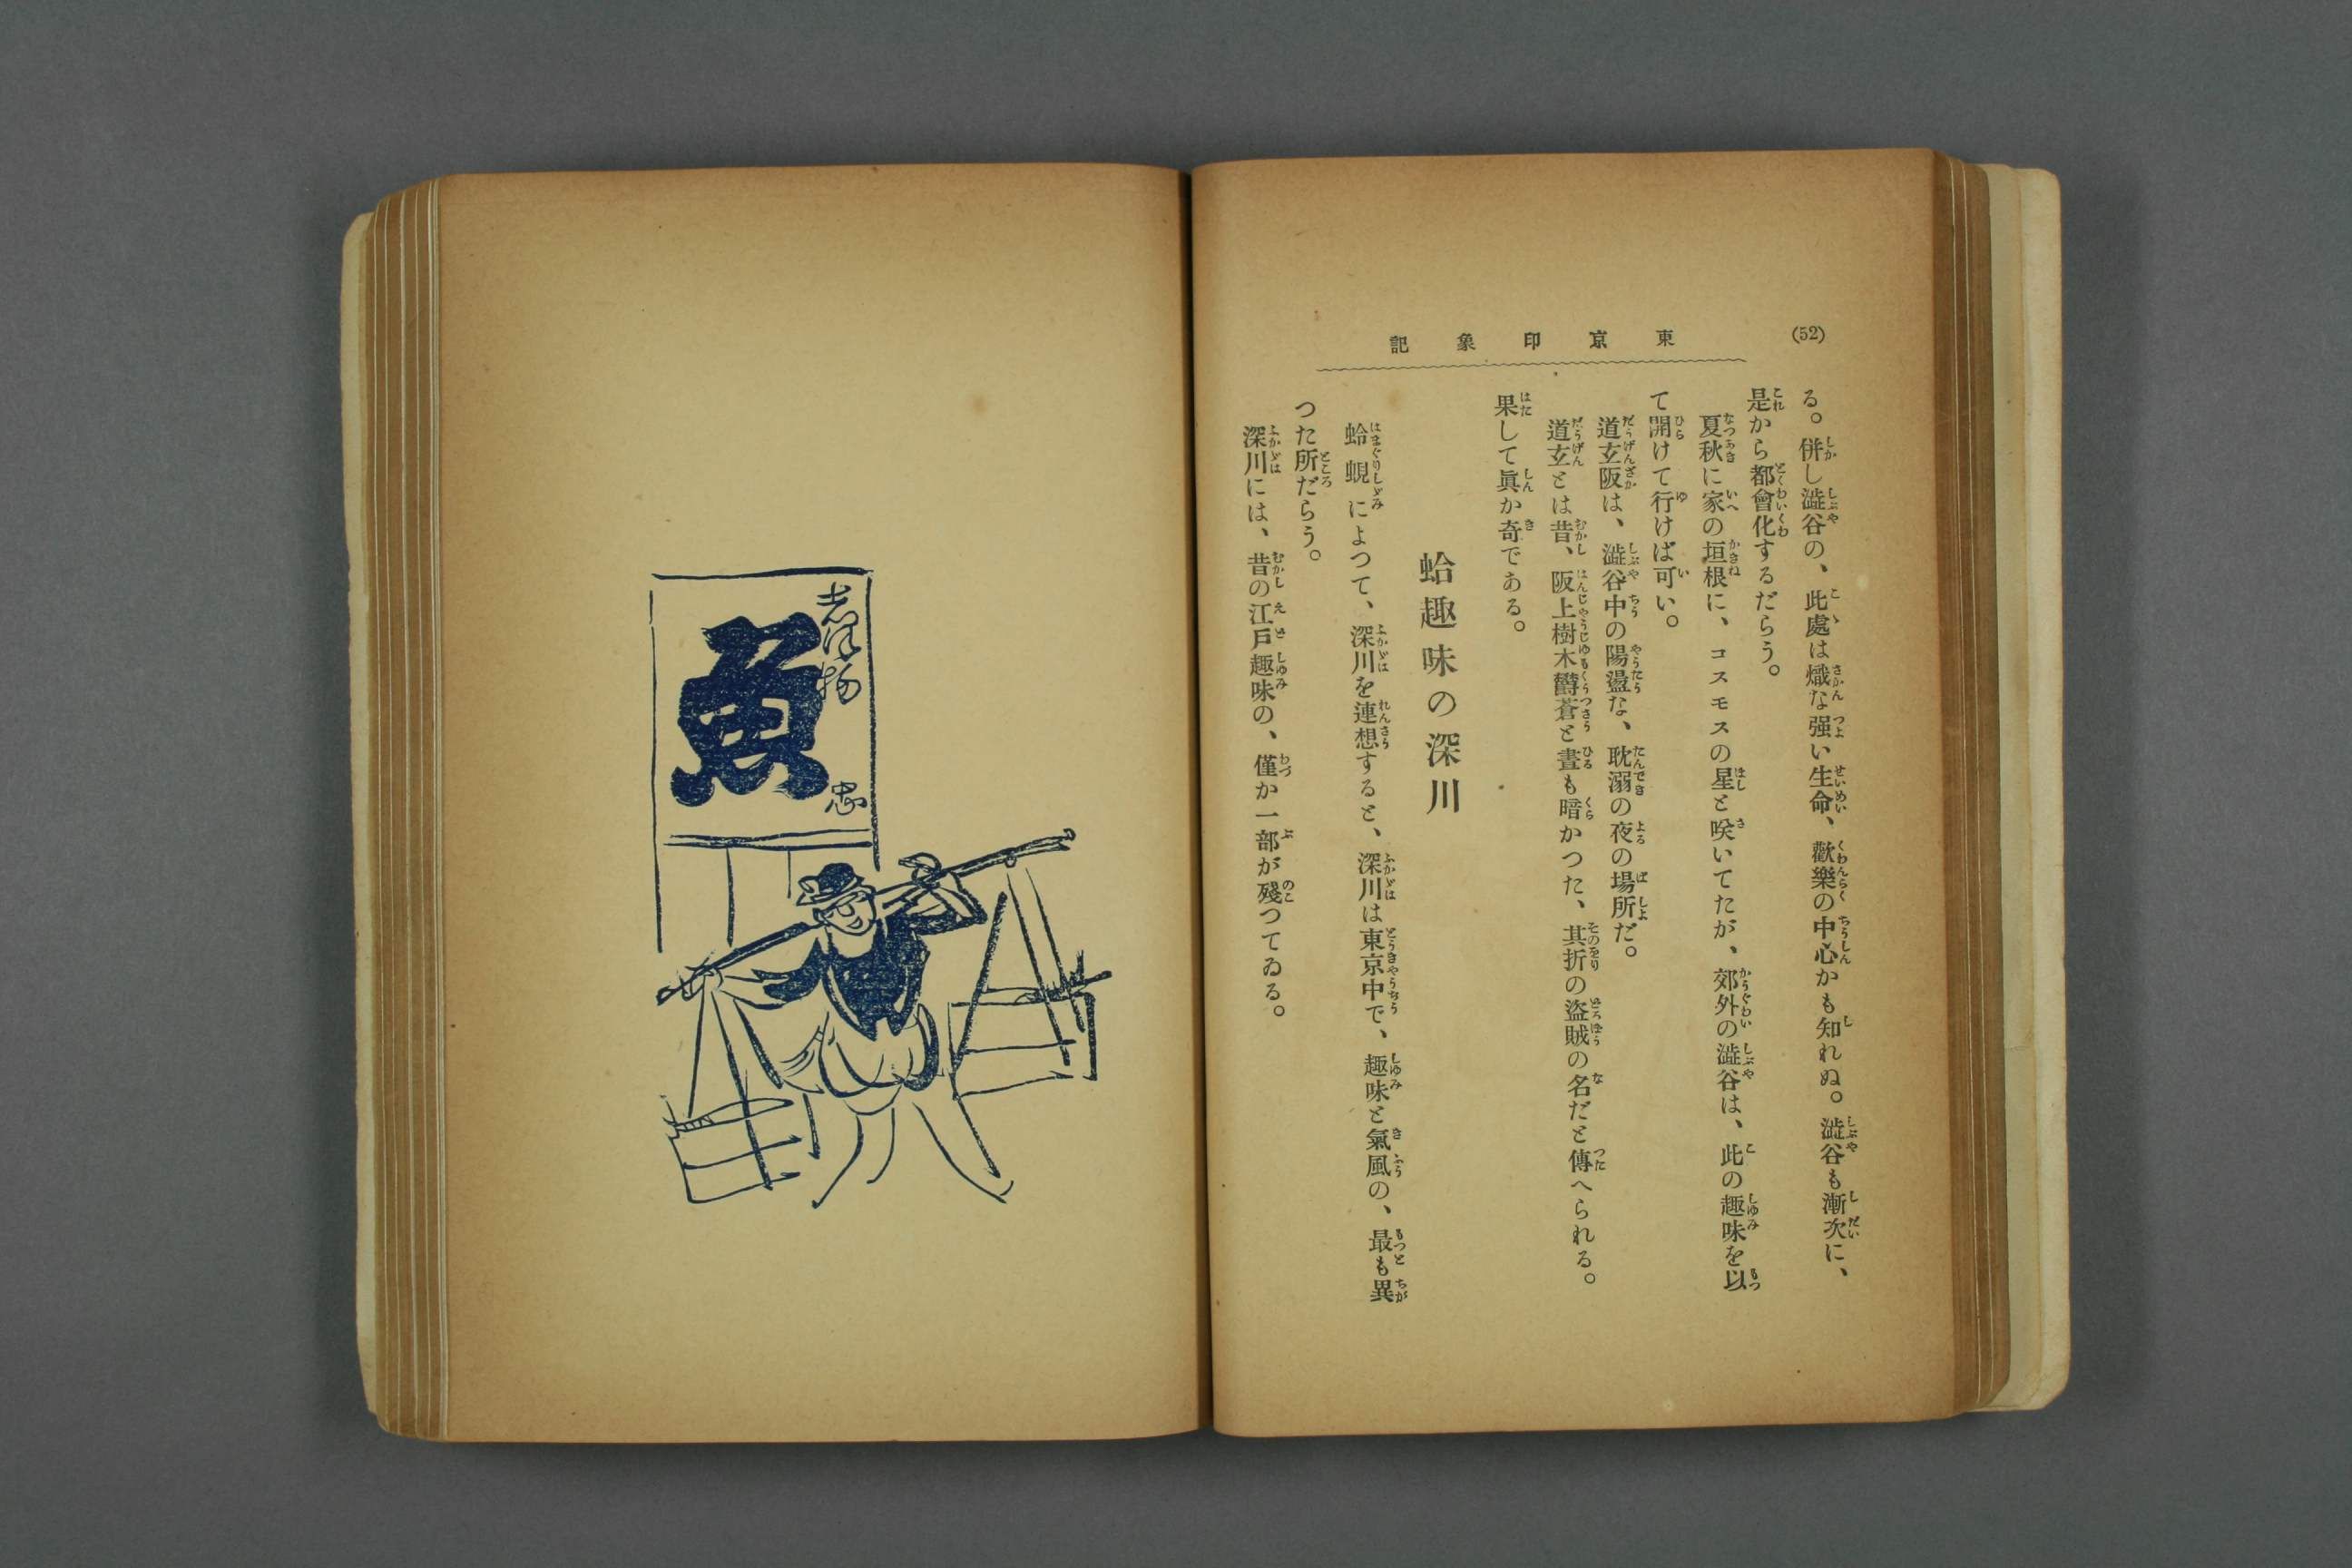 (52)
東京印象記
る。併し澁谷の、此處は熾な强い生命、歡樂の中心かも知れぬ。澁谷も漸次に、
是から都會化するだらう。
夏秋に家の垣根に、コスモスの星と咲いてたが、郊外の澁谷は、此の趣味を以
て開けて行けば可い。
道玄阪は、澁谷中の陽盪な、耽溺の夜の場所だ。
道玄とは昔、阪上樹木欝蒼と晝も暗かつた、其折の盜賊の名だと傳へられる。
果して眞か奇である。
蛤趣味の深川
蛤蜆によつて、深川を連想すると、深川は東京中で、趣味と氣風の、最も異
つた所だらう。
深川には、昔の江戸趣味の、僅か一部が殘つてゐる。
魚
忠